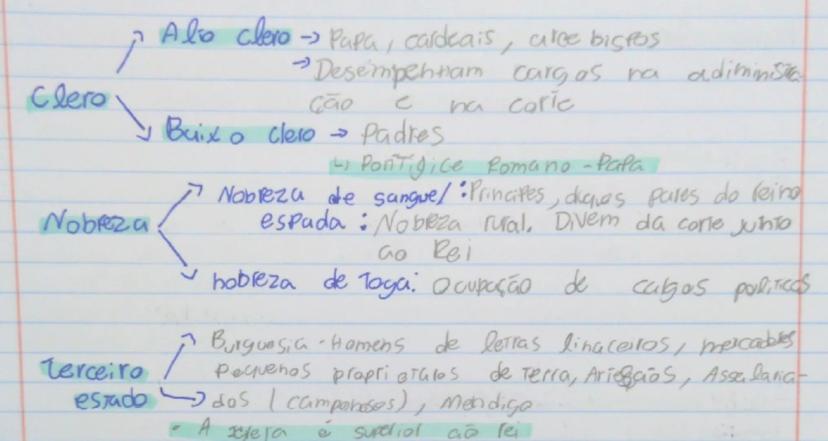 Alto clero → Papa, cardeais, arce bispos
→ Desempenham cargos na adiministra
Clero
ção e na corte
Baixo clero → Padres
↳ Pontifice Romano - Papa
Nobreza de sangue/ : Principes, duques pares do reino
Nobreza
espada : Nobreza rural. Divem da corte junto
ao Rei
nobreza de Toga: Ocupação de cargos politicos
Burguesia - Homens de letras finaceiros, mercadores
Terceiro
Pequenos proprietarios de terra, Artesãos, Assalaria-
estado
dos (camponeses), Mendigo
• A igreja é superior ao rei